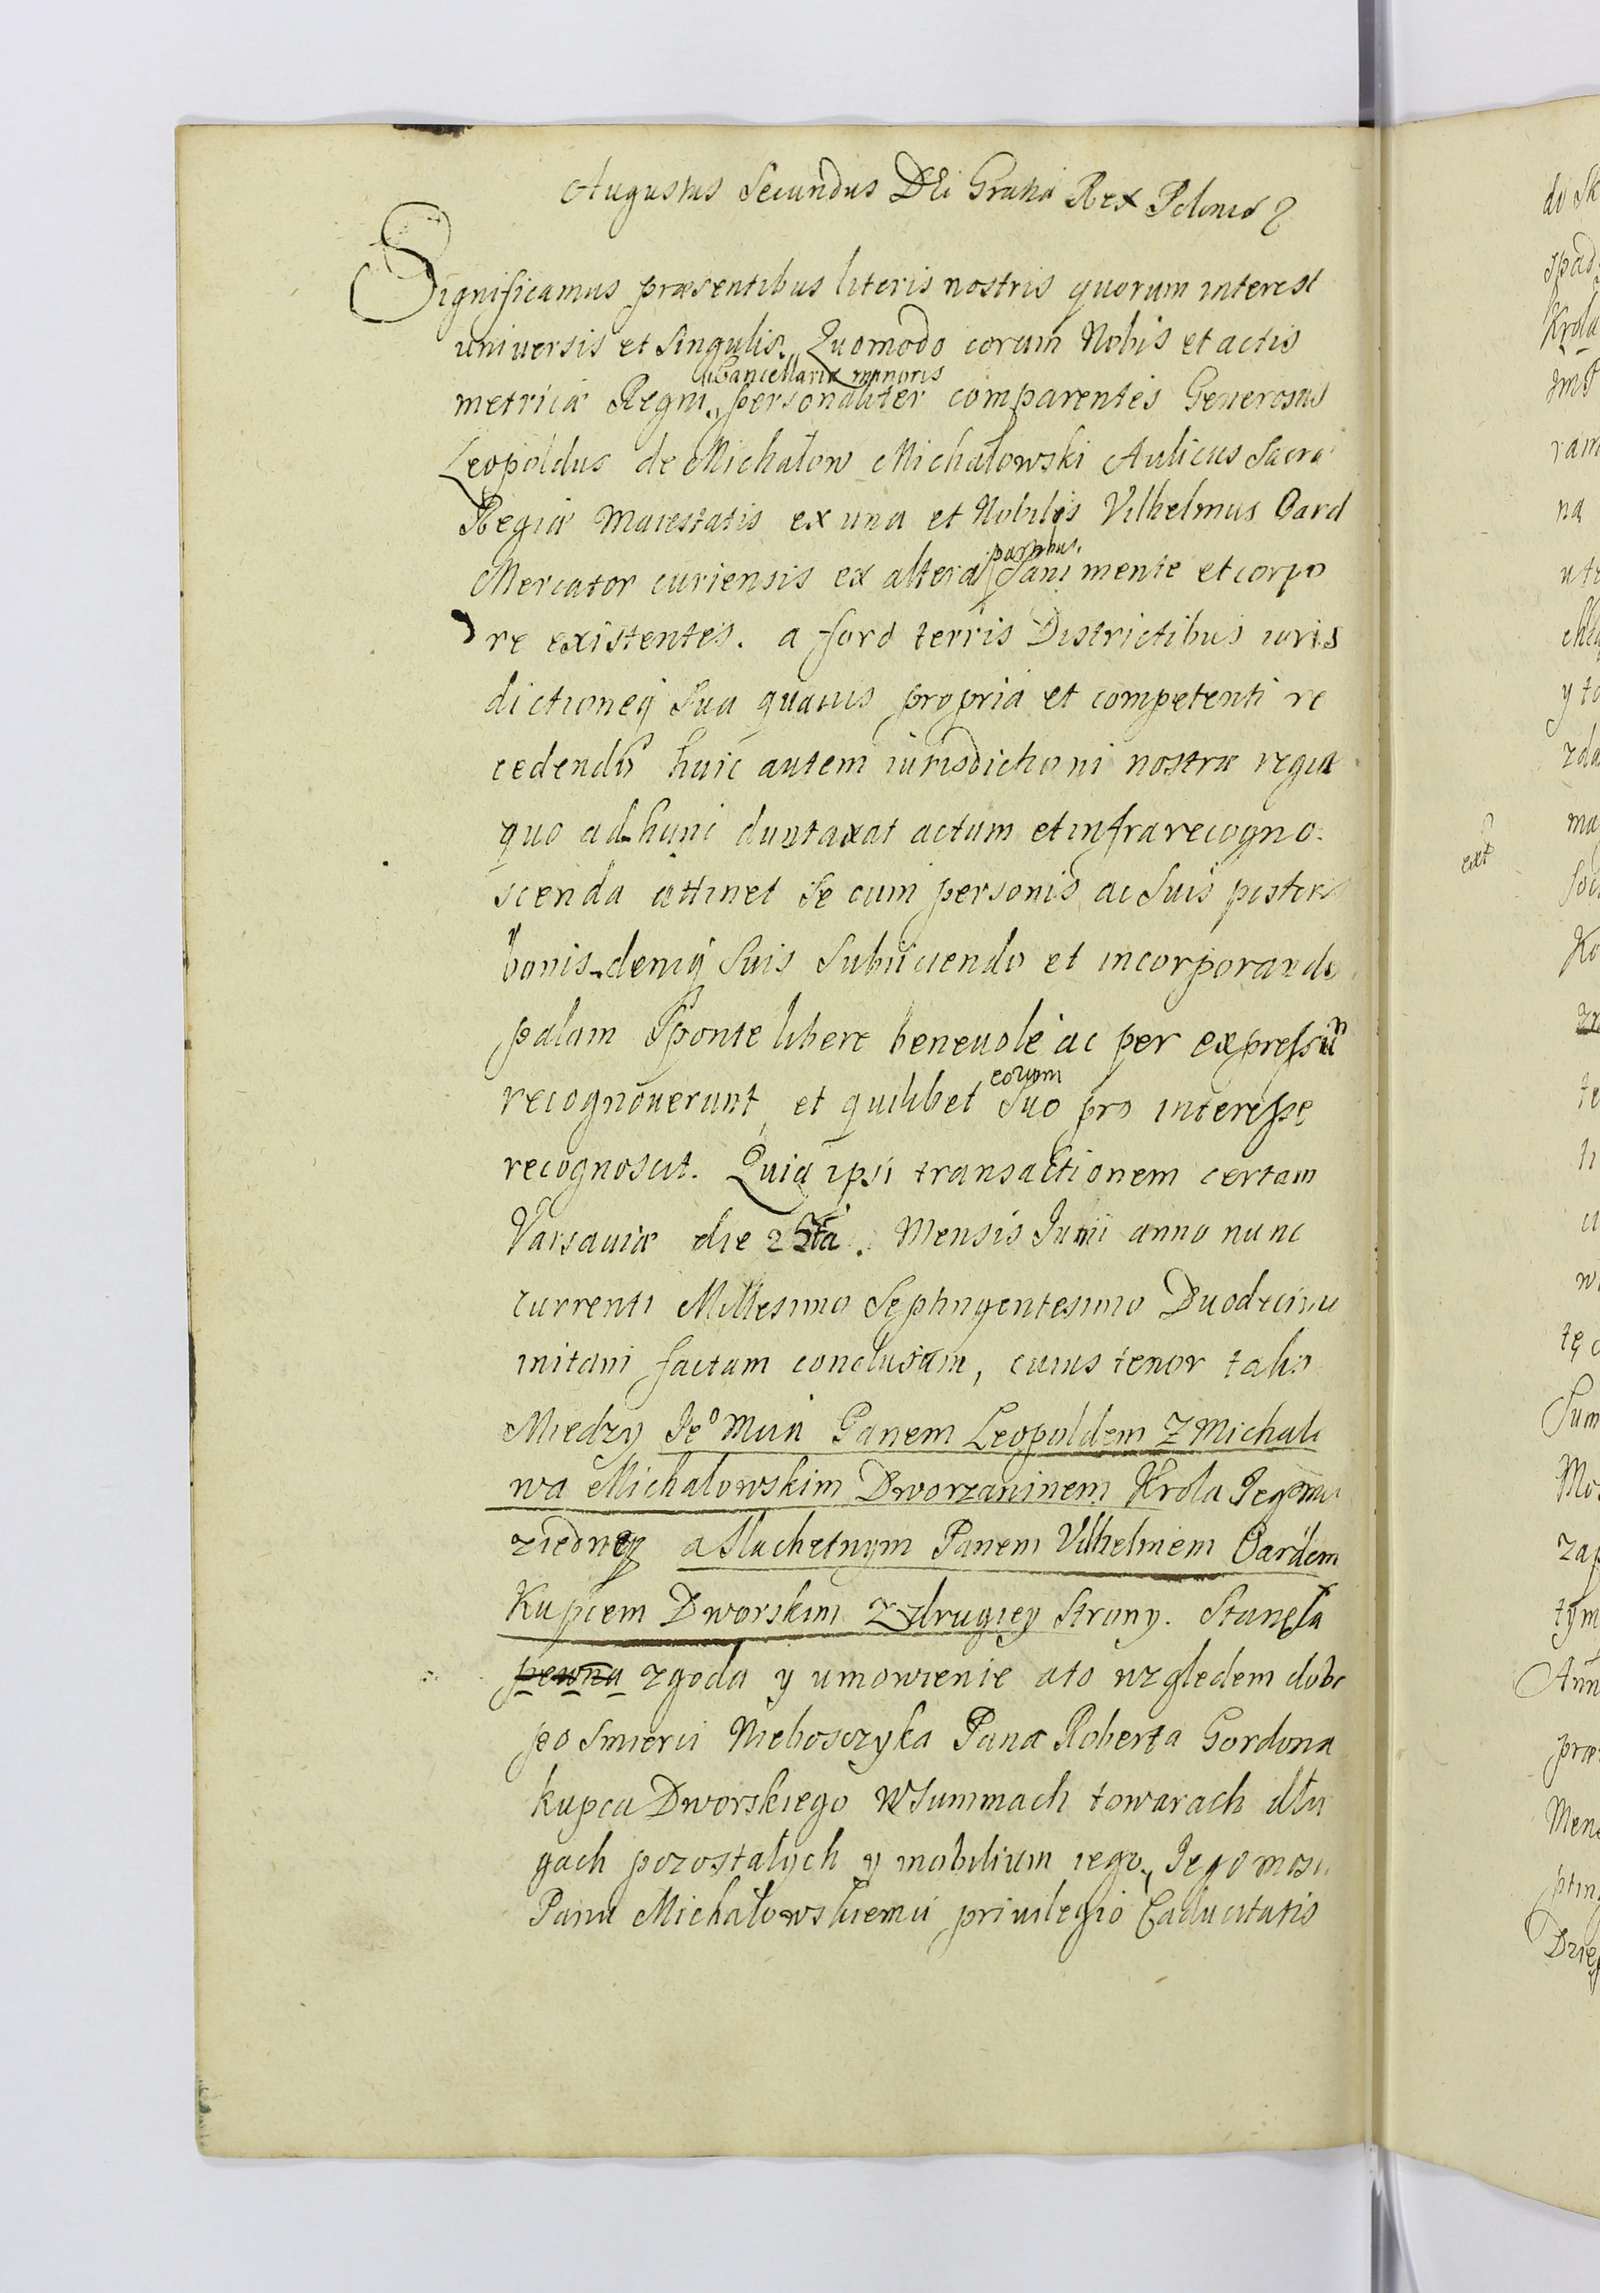 Augustus Secundus DEi Gratia Rex Poloniæ
Significamus præsentibus literis nostris quorum interest
universis et singulis. Quomodo coram Nobis et actis
Cancellariæ minoris
metricæ Regni personaliter comparentes Generosus
Leopoldus de Michałow Michałowski Aulicus Sacræ
Regiæ Maiestatis ex una et Nobilis Vilhelmus Oard
partibus.
Mercator curiensis ex altera Sani mente et corpo
re existentes. a foro terris Districtibus iuris
dictioneq sua quavis propria et competenti re
cedendo huic autem iurisdictioni nostræ regiæ
quo ad hunc duntaxat actum et infra recogno
scenda attinet se cum personis ac suis poster
bonis deniq suis subiiciendo et incorporando
palam sponte libere benevole ac per expressũ
eorum
recognoverunt et quilibet suo pro interesse
recognoscit. Quia ipsi transactionem certam
Varsaviæ die Mensis Junii anno nunc
currenti Millesimo Septingentesimo Duodecimo
initam factam conclusam, cuius tenor talis
Miedzy Panem Leopoldem Z Michalo
wa Michalowskim Dworzaninem Krola Jegomci
ziedney a Slachetnym Panem Vilhelmem Oardem
Kupcem Dworskim z drugiey Strony. Stanęła
pewna zgoda y umowienie ato względem dobr
po Smierci Nieboszczyka Pana Roberta Gordona
kupca Dworskiego w Summach towarach dłu
gach pozostałych y mobilium iego, Jegomosci
Panu Michałowskiemu privilegio Caducitatis
ext